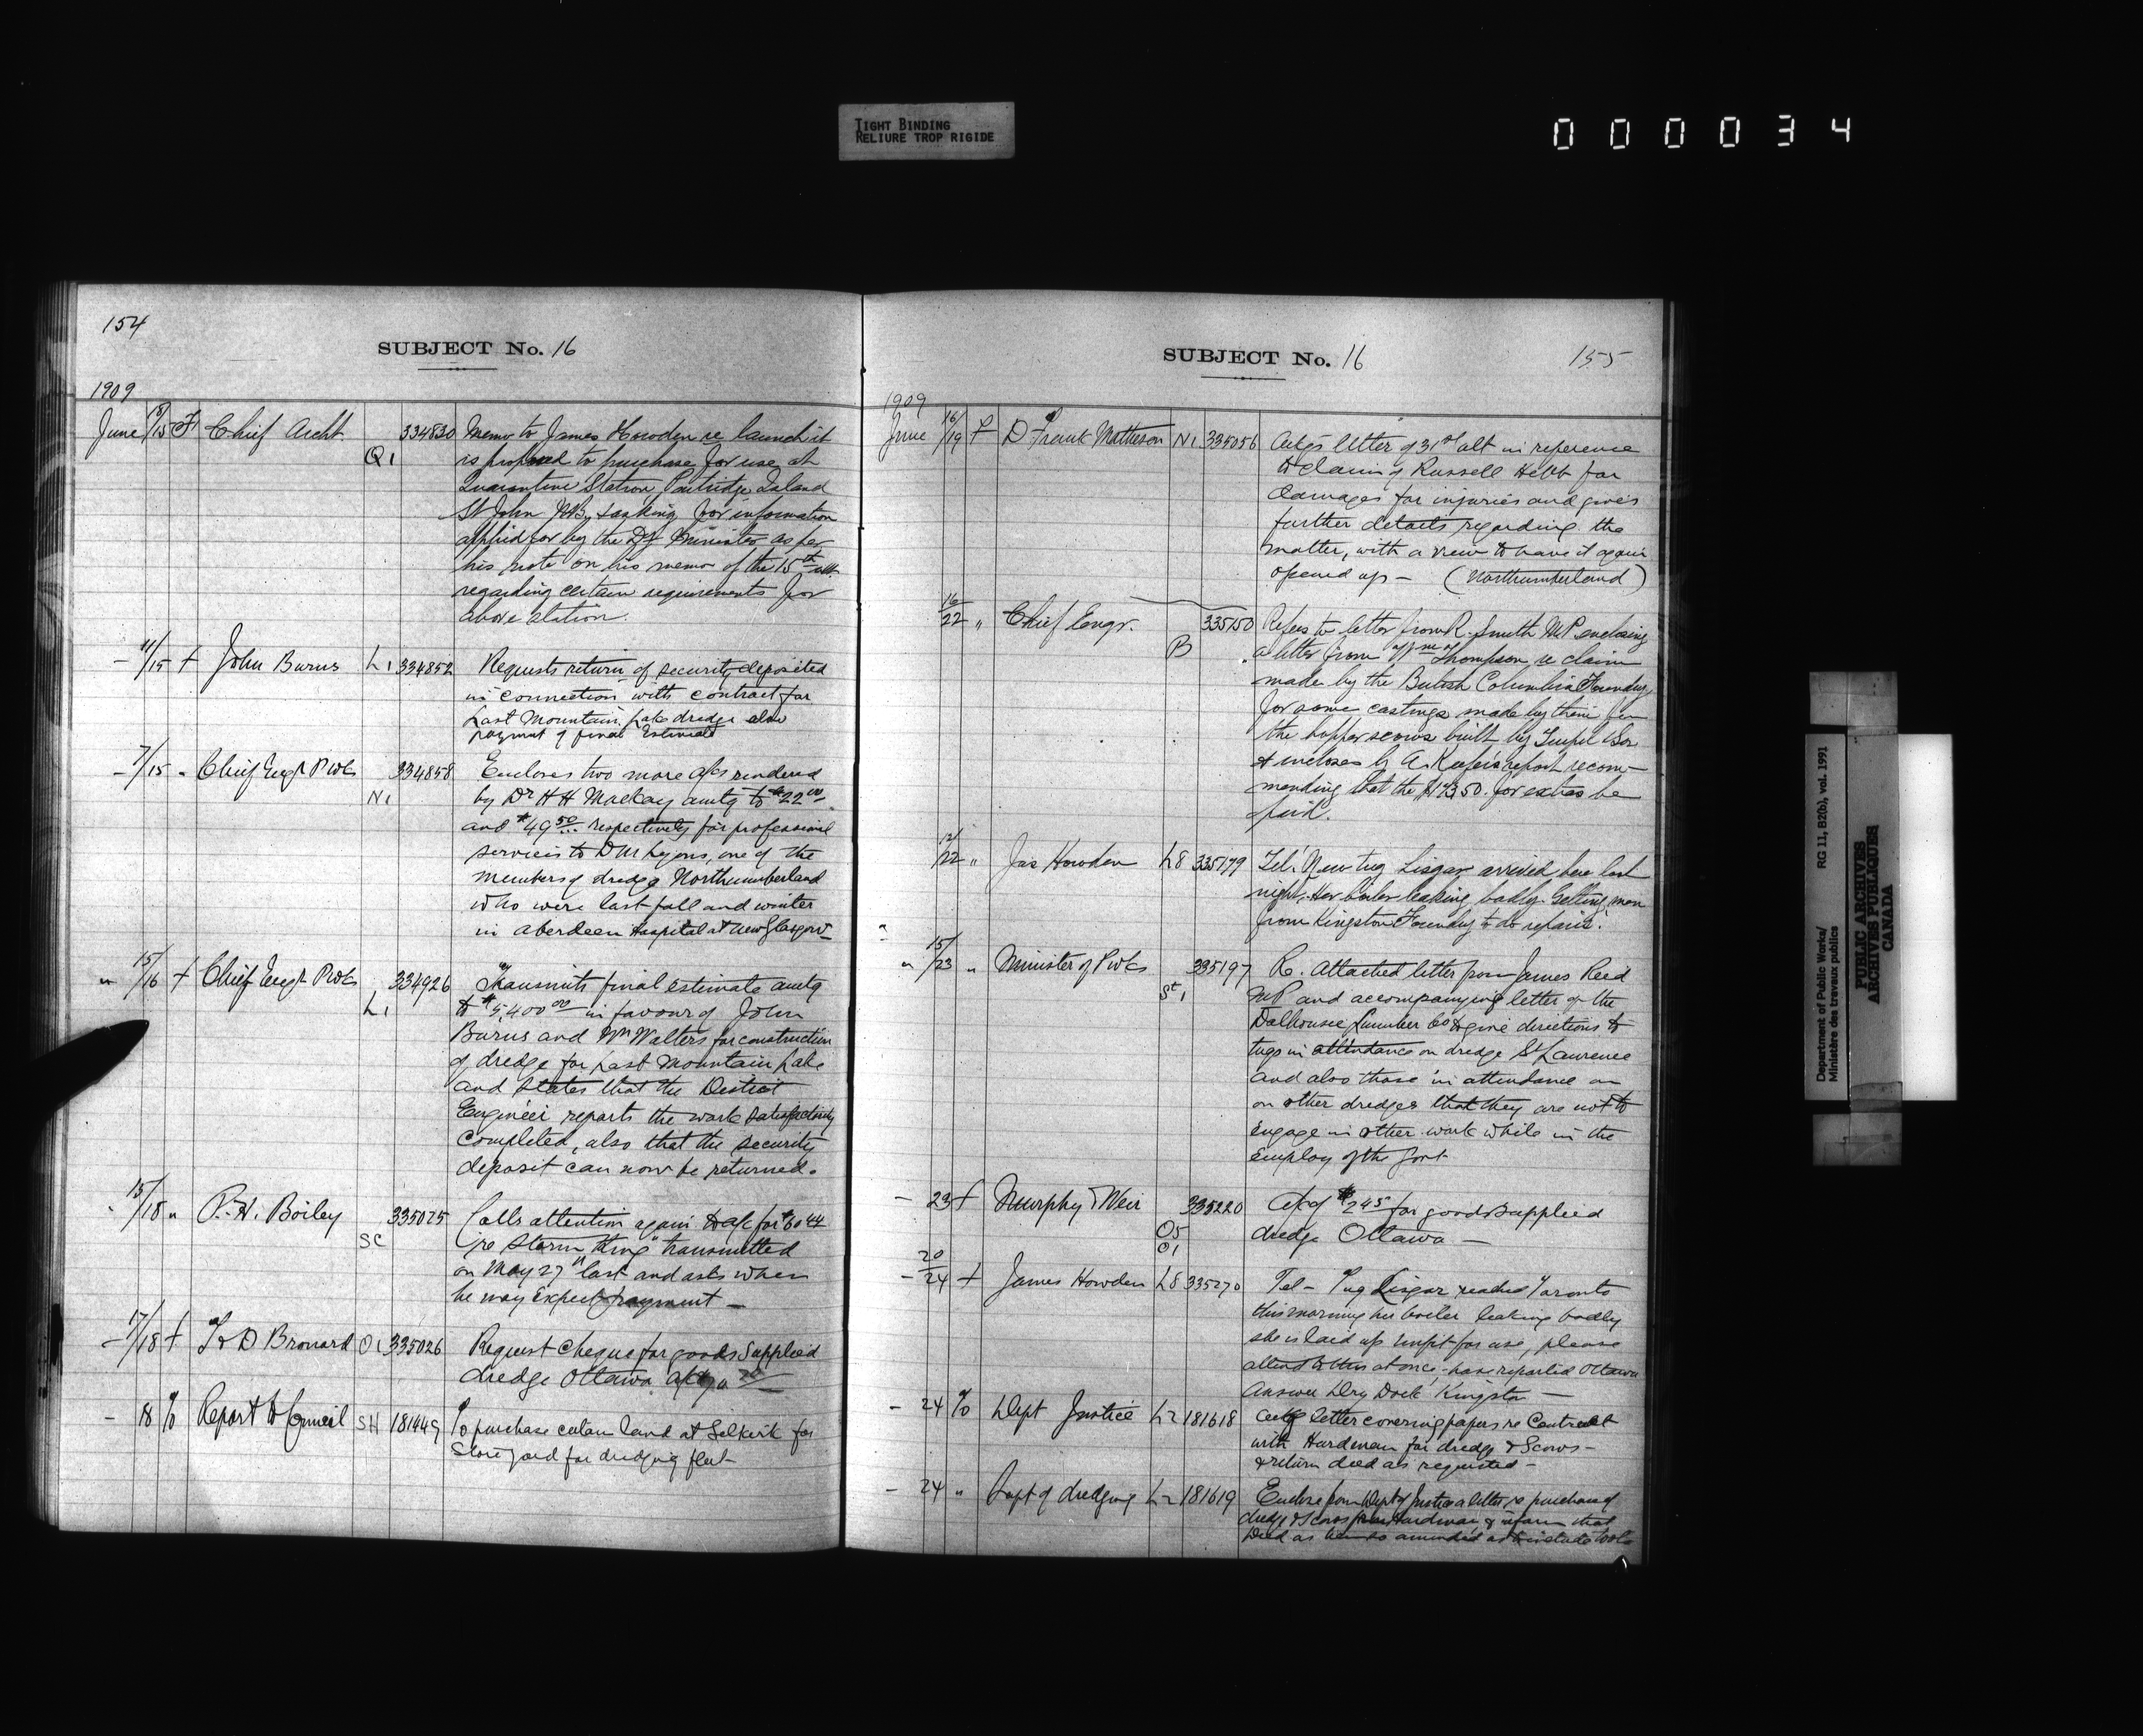 TIGHT BINDING
RELIURE TROP RIGIDE
000034
154
SUBJECT No. 16
1909
June 8/15 F Chief Archt Q1 334830 Memo to James Howden re launch it
is proposed to purchase for use at
Quarantine Station Partridge Island
St John NB, & asking for information
applied for by the Dy Minister as per
his note on his memo of the 15th ult.
regarding certain requirements for
above station.
– 11/15 f John Burns L1 334852 Requests return of security deposited
in connection with contract for
Last Mountain Lake dredge also
payment of final Estimate
– 7/15 " Chief Engr PWks N1 334858 Encloses two more a/cs rendered
by Dr H H Mackay amtg to $22 00
and $49 50 respectively for professional
services to D M Lyons, one of the
members of dredge Northumberland
who were last fall and winter
in Aberdeen Hospital at New Glasgow–
" 15/16 f Chief Engr PWks L1 334926 Transmits final estimate amtg
to $5,400 00 in favour of John
Burns and Wm Walters for construction
of dredge for Last Mountain Lake
and states that the District
Engineer reports the work satisfactorily
completed, also that the security
deposit can now be returned.
" 15/18 " P. H. Boiley SC 335025 Calls attention again to a/c for $60 44
re "Storm King" transmitted
on May 27th last and asks when
he may expect payment –
– 17/18 f T & D Bronard O1 335026 Request cheque for goods supplied
dredge Ottawa
– 18 % Report to Council SH 181449 To purchase certain land at Selkirk for
Store yard for dredging fleet–
SUBJECT No. 16
155
1909
June 16/19 f D Frank Matheson N1 335056 Ackgs letter of 31st ult in reference
to claim of Russell Hebb for
damages for injuries and gives
further details regarding the
matter, with a view to have it again
opened up – (Northumberland)
16/22 " Chief Engr. B 335150 Refers to letter from R. Smith MP enclosing
a letter from Thompson re claim
made by the British Columbia Foundry
for some castings made by them for
the hopper scows built by & Son
& encloses G. A. Keefers report recom–
mending that the for extras be
paid.
12/22 " Jas Howden L8 335179 Tel. "New tug Lisgar arrived here last
night. Her boiler leaking badly. Getting men
from Kingston Foundry to do repairs."
" 15/23 " Minister of PWks St 1 335197 Re. Attached letter from James Reid
MP and accompanying letter of the
Dalhousie Lumber Co to give directions to
tugs in attendance on dredge St Laurence
and also those in attendance on
on other dredges that they are not to
engage in other work while in the
employ of the Govt
– 23 f Murphy & Weir O5 O1 335220 a/c of $2 45 for goods supplied
dredge Ottawa –
– 20/24 f James Howden L8 335270 Tel – Tug Lisgar reached Toronto
this morning her boiler leaking badly
she is laid up unfit for use, please
attend to this at once, have reported Ottawa
Answer Dry Dock Kingston –
– 24 % Dept Justice L2 181618 Ackg letter covering papers re Contract
with Hardman for dredge & Scows –
& return deed as requested –
– 24 " Supt of dredging L2 181619 Enclose from Dept of Justice a letter re purchase of
dredge & Scows from Hardman & inform that
Deed as to be so amended as to include tools
Department of Public Works/ RG 11, B2(b), vol. 1991
Ministère des travaux publics
PUBLIC ARCHIVES
ARCHIVES PUBLIQUES
CANADA